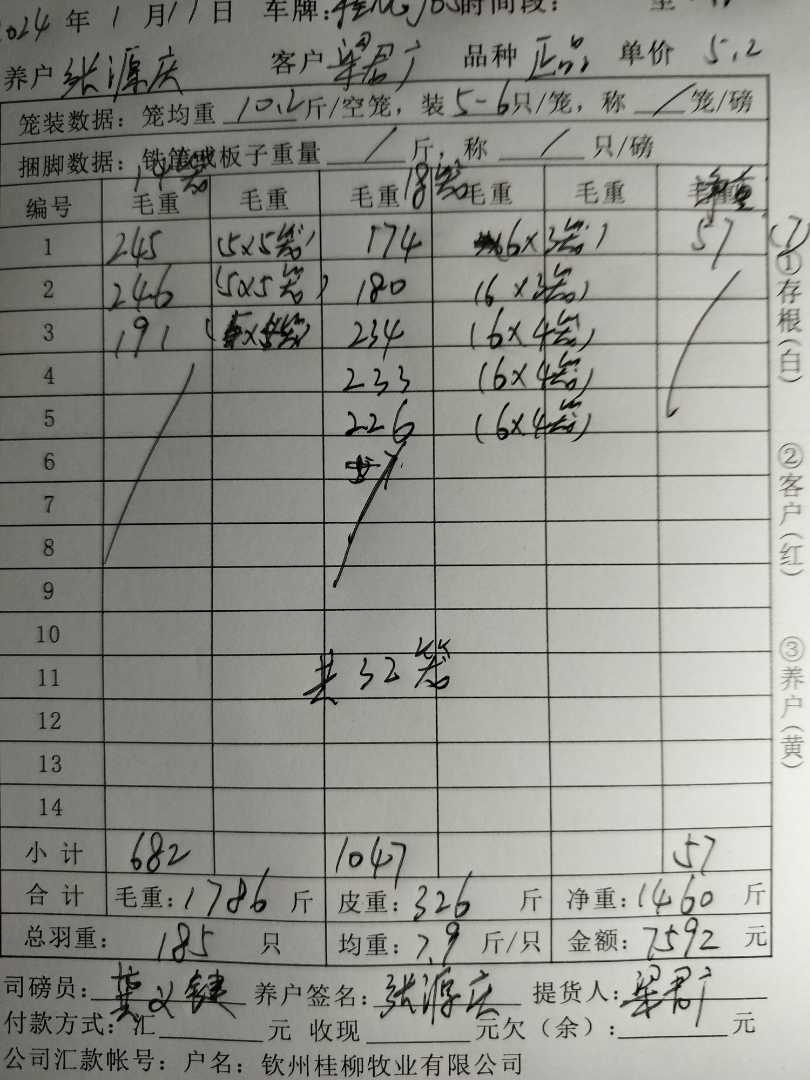 2024年1月11日 车牌: 时间段: 至
养户 张源庆 客户 梁君广 品种 正品 单价 5.2
笼装数据: 笼均重 10.2 斤/空笼, 装 5-6 只/笼, 称 / 笼/磅
捆脚数据: 铁笼或板子重量 / 斤, 称 / 只/磅
14笼 18笼
编号 毛重 毛重 毛重 毛重 毛重 净重
1 245 (5×5笼) 174 (6×3笼) 57 (7)
2 246 (5×5笼) 180 (6×3笼)
3 191 234 (6×4笼)
4 233 (6×4笼)
5 226 (6×4笼)
6
7
8
9
10
共32笼
11
12
13
14
小计 682 1047 57
合计 毛重: 1786 斤 皮重: 326 斤 净重: 1460 斤
总羽重: 185 只 均重: 7.9 斤/只 金额: 7592 元
司磅员: 莫义键 养户签名: 张源庆 提货人: 梁君广
付款方式: 汇 元 收现 元欠(余): 元
公司汇款帐号: 户名: 钦州桂柳牧业有限公司
①存根(白) ②客户(红) ③养户(黄)